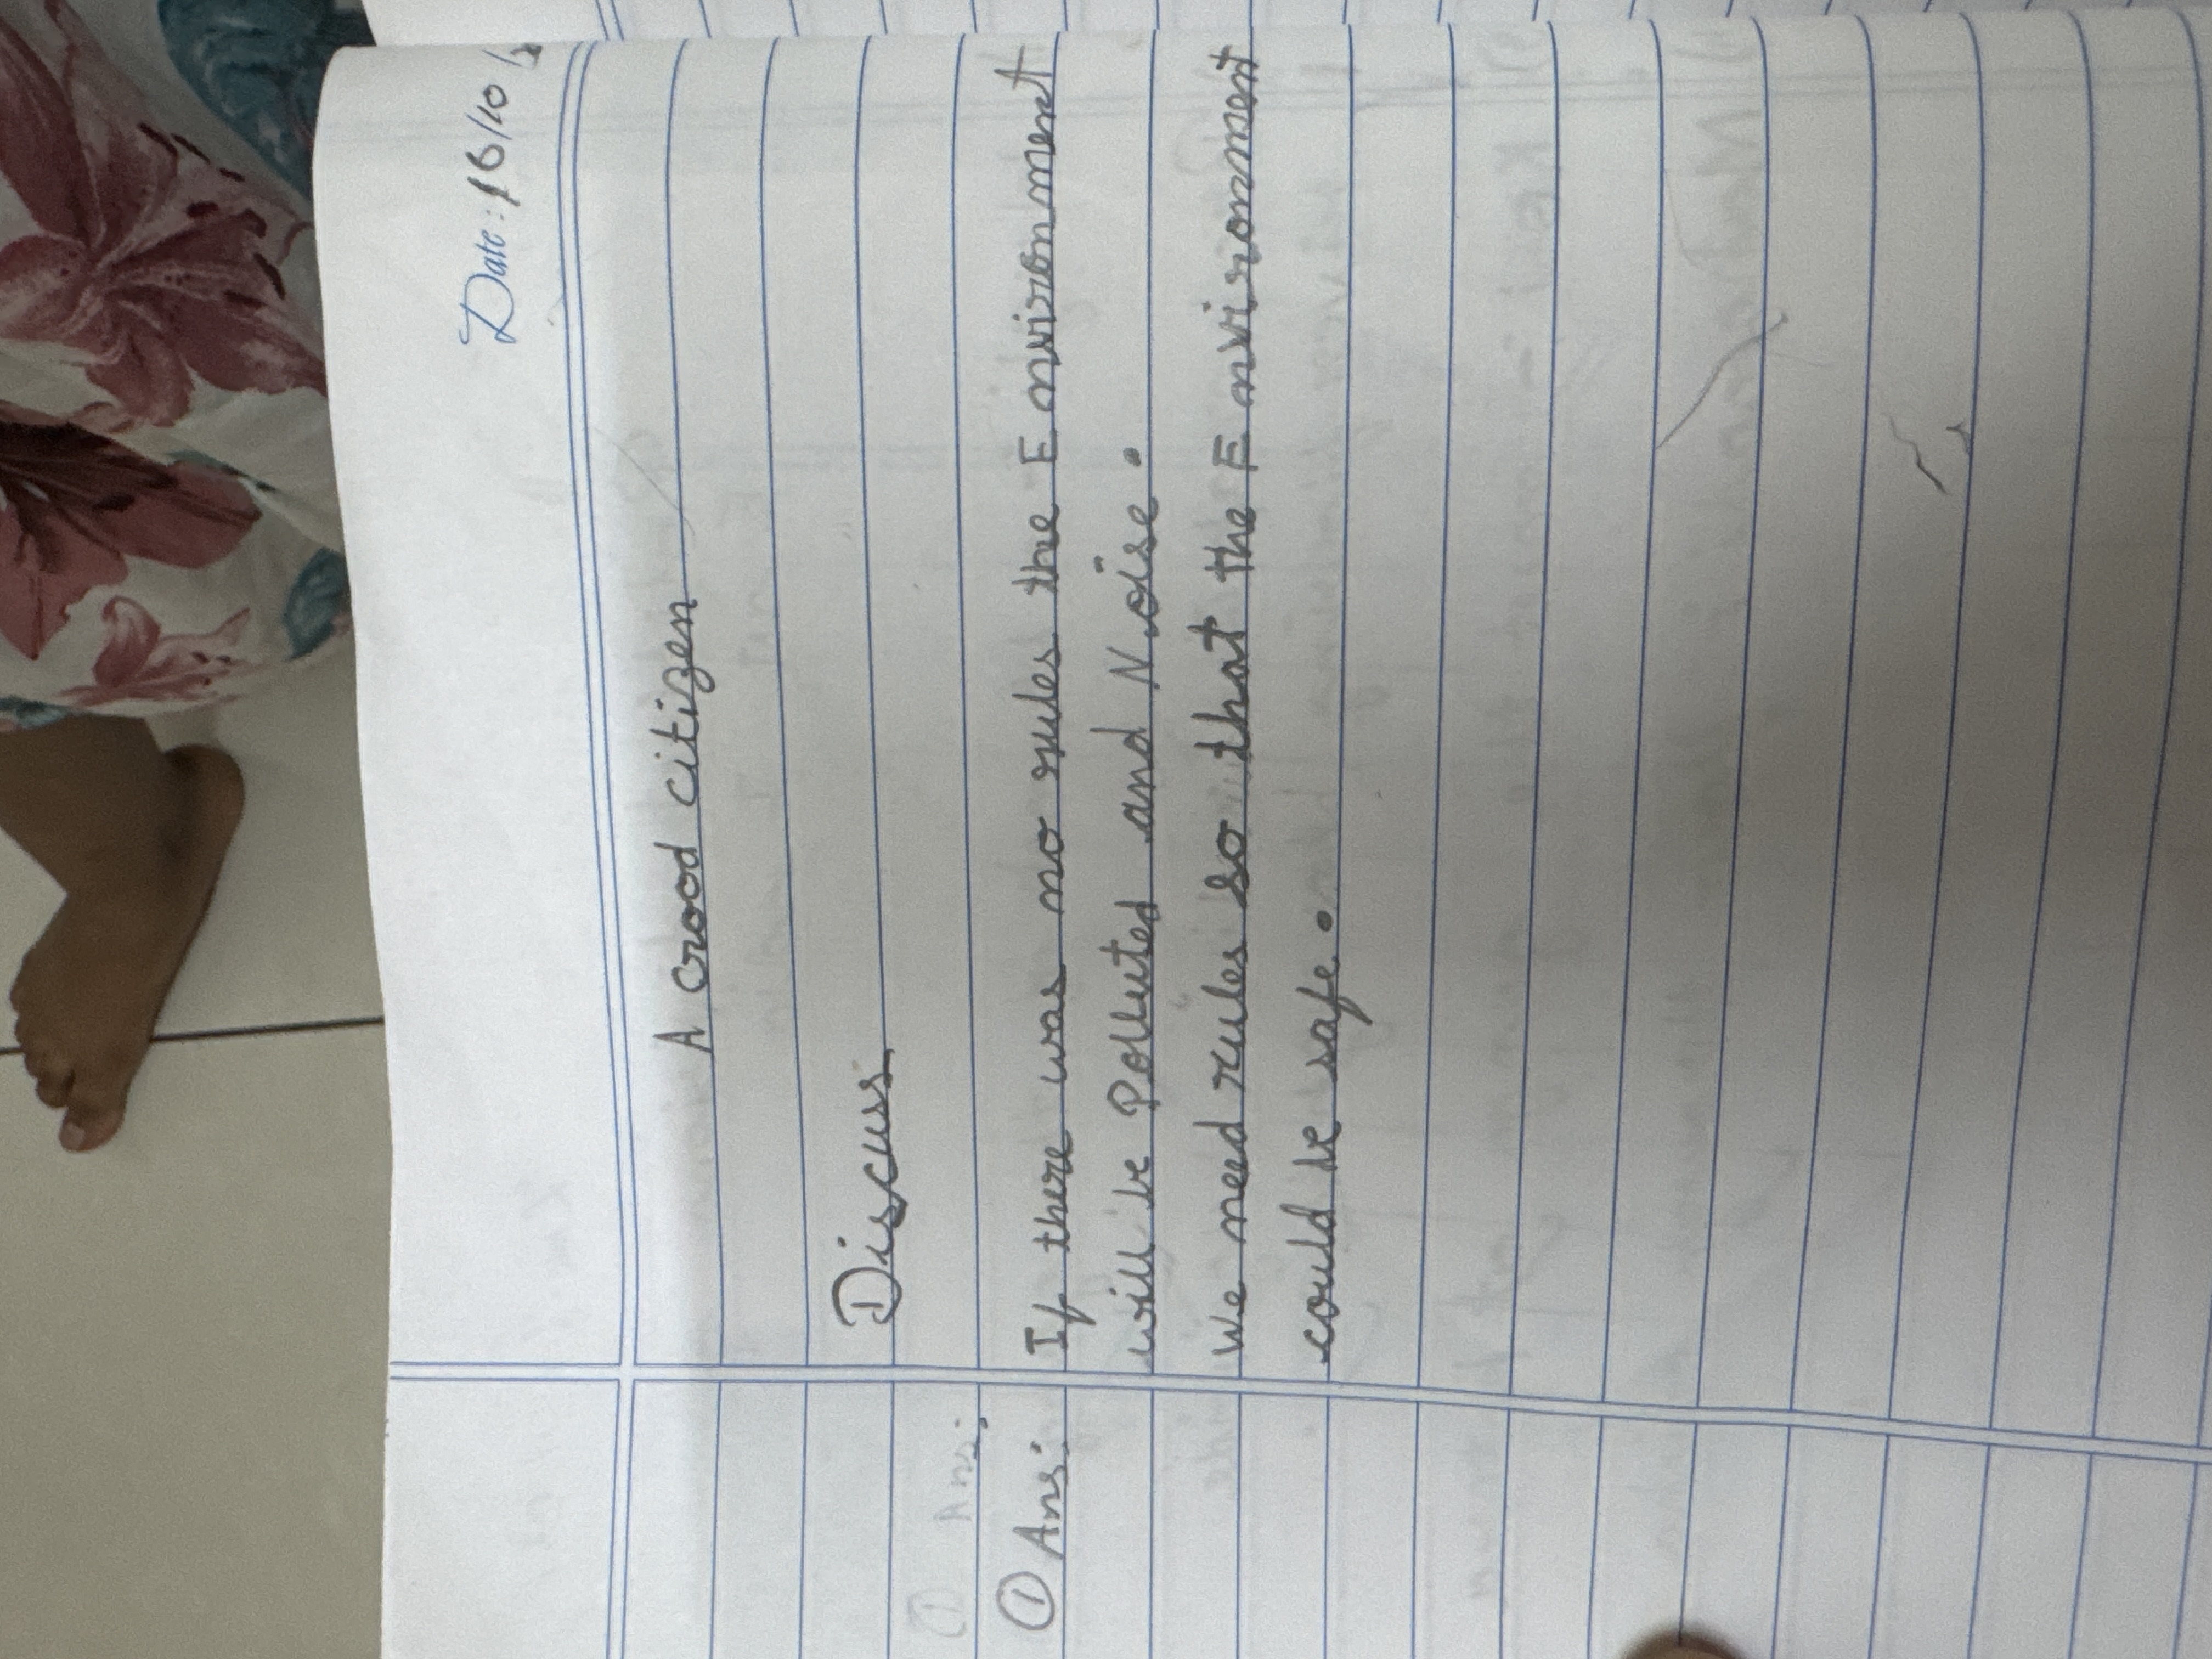 Date: 16/10
A Good citizen
Discuss
① Ans: If there was no rules the Environment
will be Polluted and Noise.
We need rules so that the Environment
could be safe.